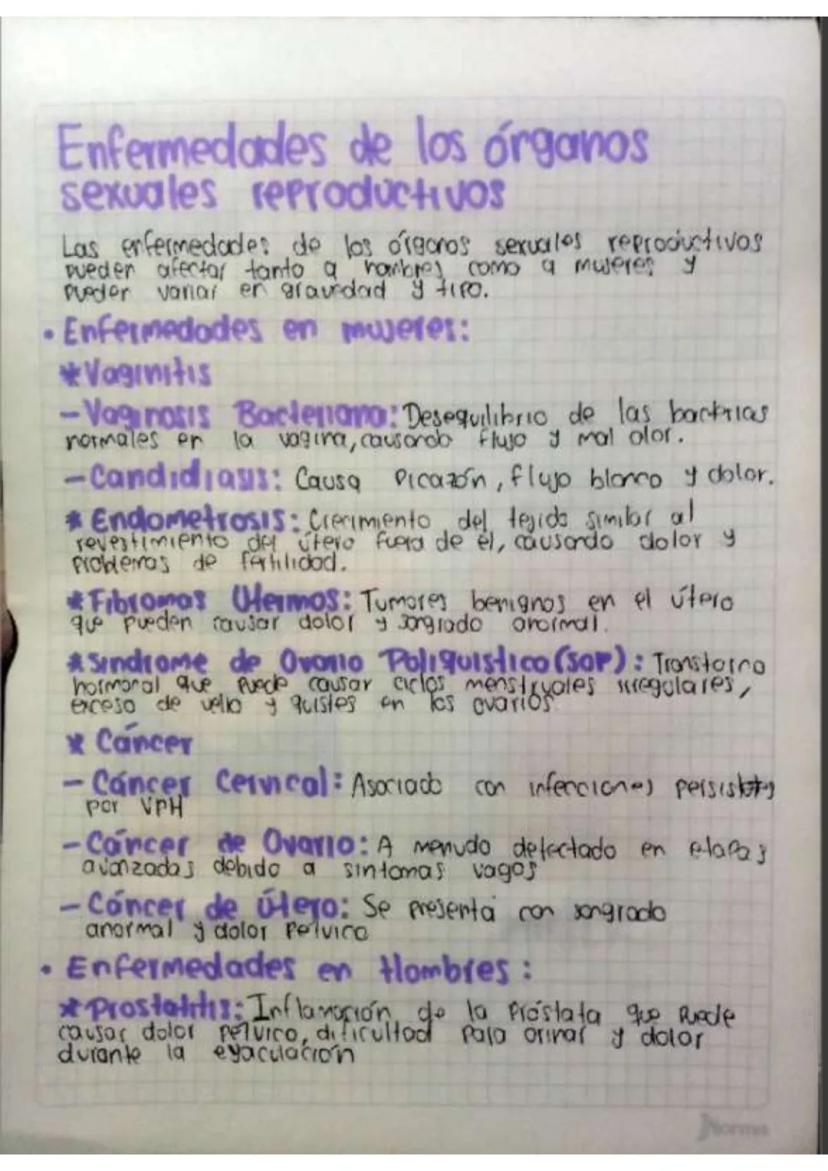 Enfermedades de los órganos
sexuales reproductivos
Las enfermedades de los órganos sexuales reproductivos
pueden afectar tanto a hombres como a mujeres y
pueden variar en gravedad y tipo.
• Enfermedades en mujeres:
* Vaginitis
- Vaginosis Bacteriana: Desequilibrio de las bactrias
normales en la vagina, causando flujo y mal olor.
- Candidiasis: Causa Picazón, flujo blanco y dolor.
* Endometrosis: Crecimiento del tejido similar al
revestimiento del útero fuera de él, causando dolor y
problemas de fertilidad.
* Fibromas Uterinos: Tumores benignos en el útero
que pueden causar dolor y sangrado anormal.
* Sindrome de Ovario Poliquistico (SOP): Transtorno
hormonal que puede causar ciclos menstruales irregulares,
exceso de vello y quistes en los ovarios
* Cáncer
- Cáncer Cervical: Asociado con infecciones persistets
por VPH
- Cáncer de Ovario: A menudo detectado en etapas
avanzadas debido a sintomas vagos
- Cáncer de útero: Se presenta con sangrado
anormal y dolor Pelvico
• Enfermedades en Hombres:
* Prostatitis: Inflamación de la Próstata que Puede
causar dolor pelvico, dificultad para orinar y dolor
durante la eyaculación
Norma